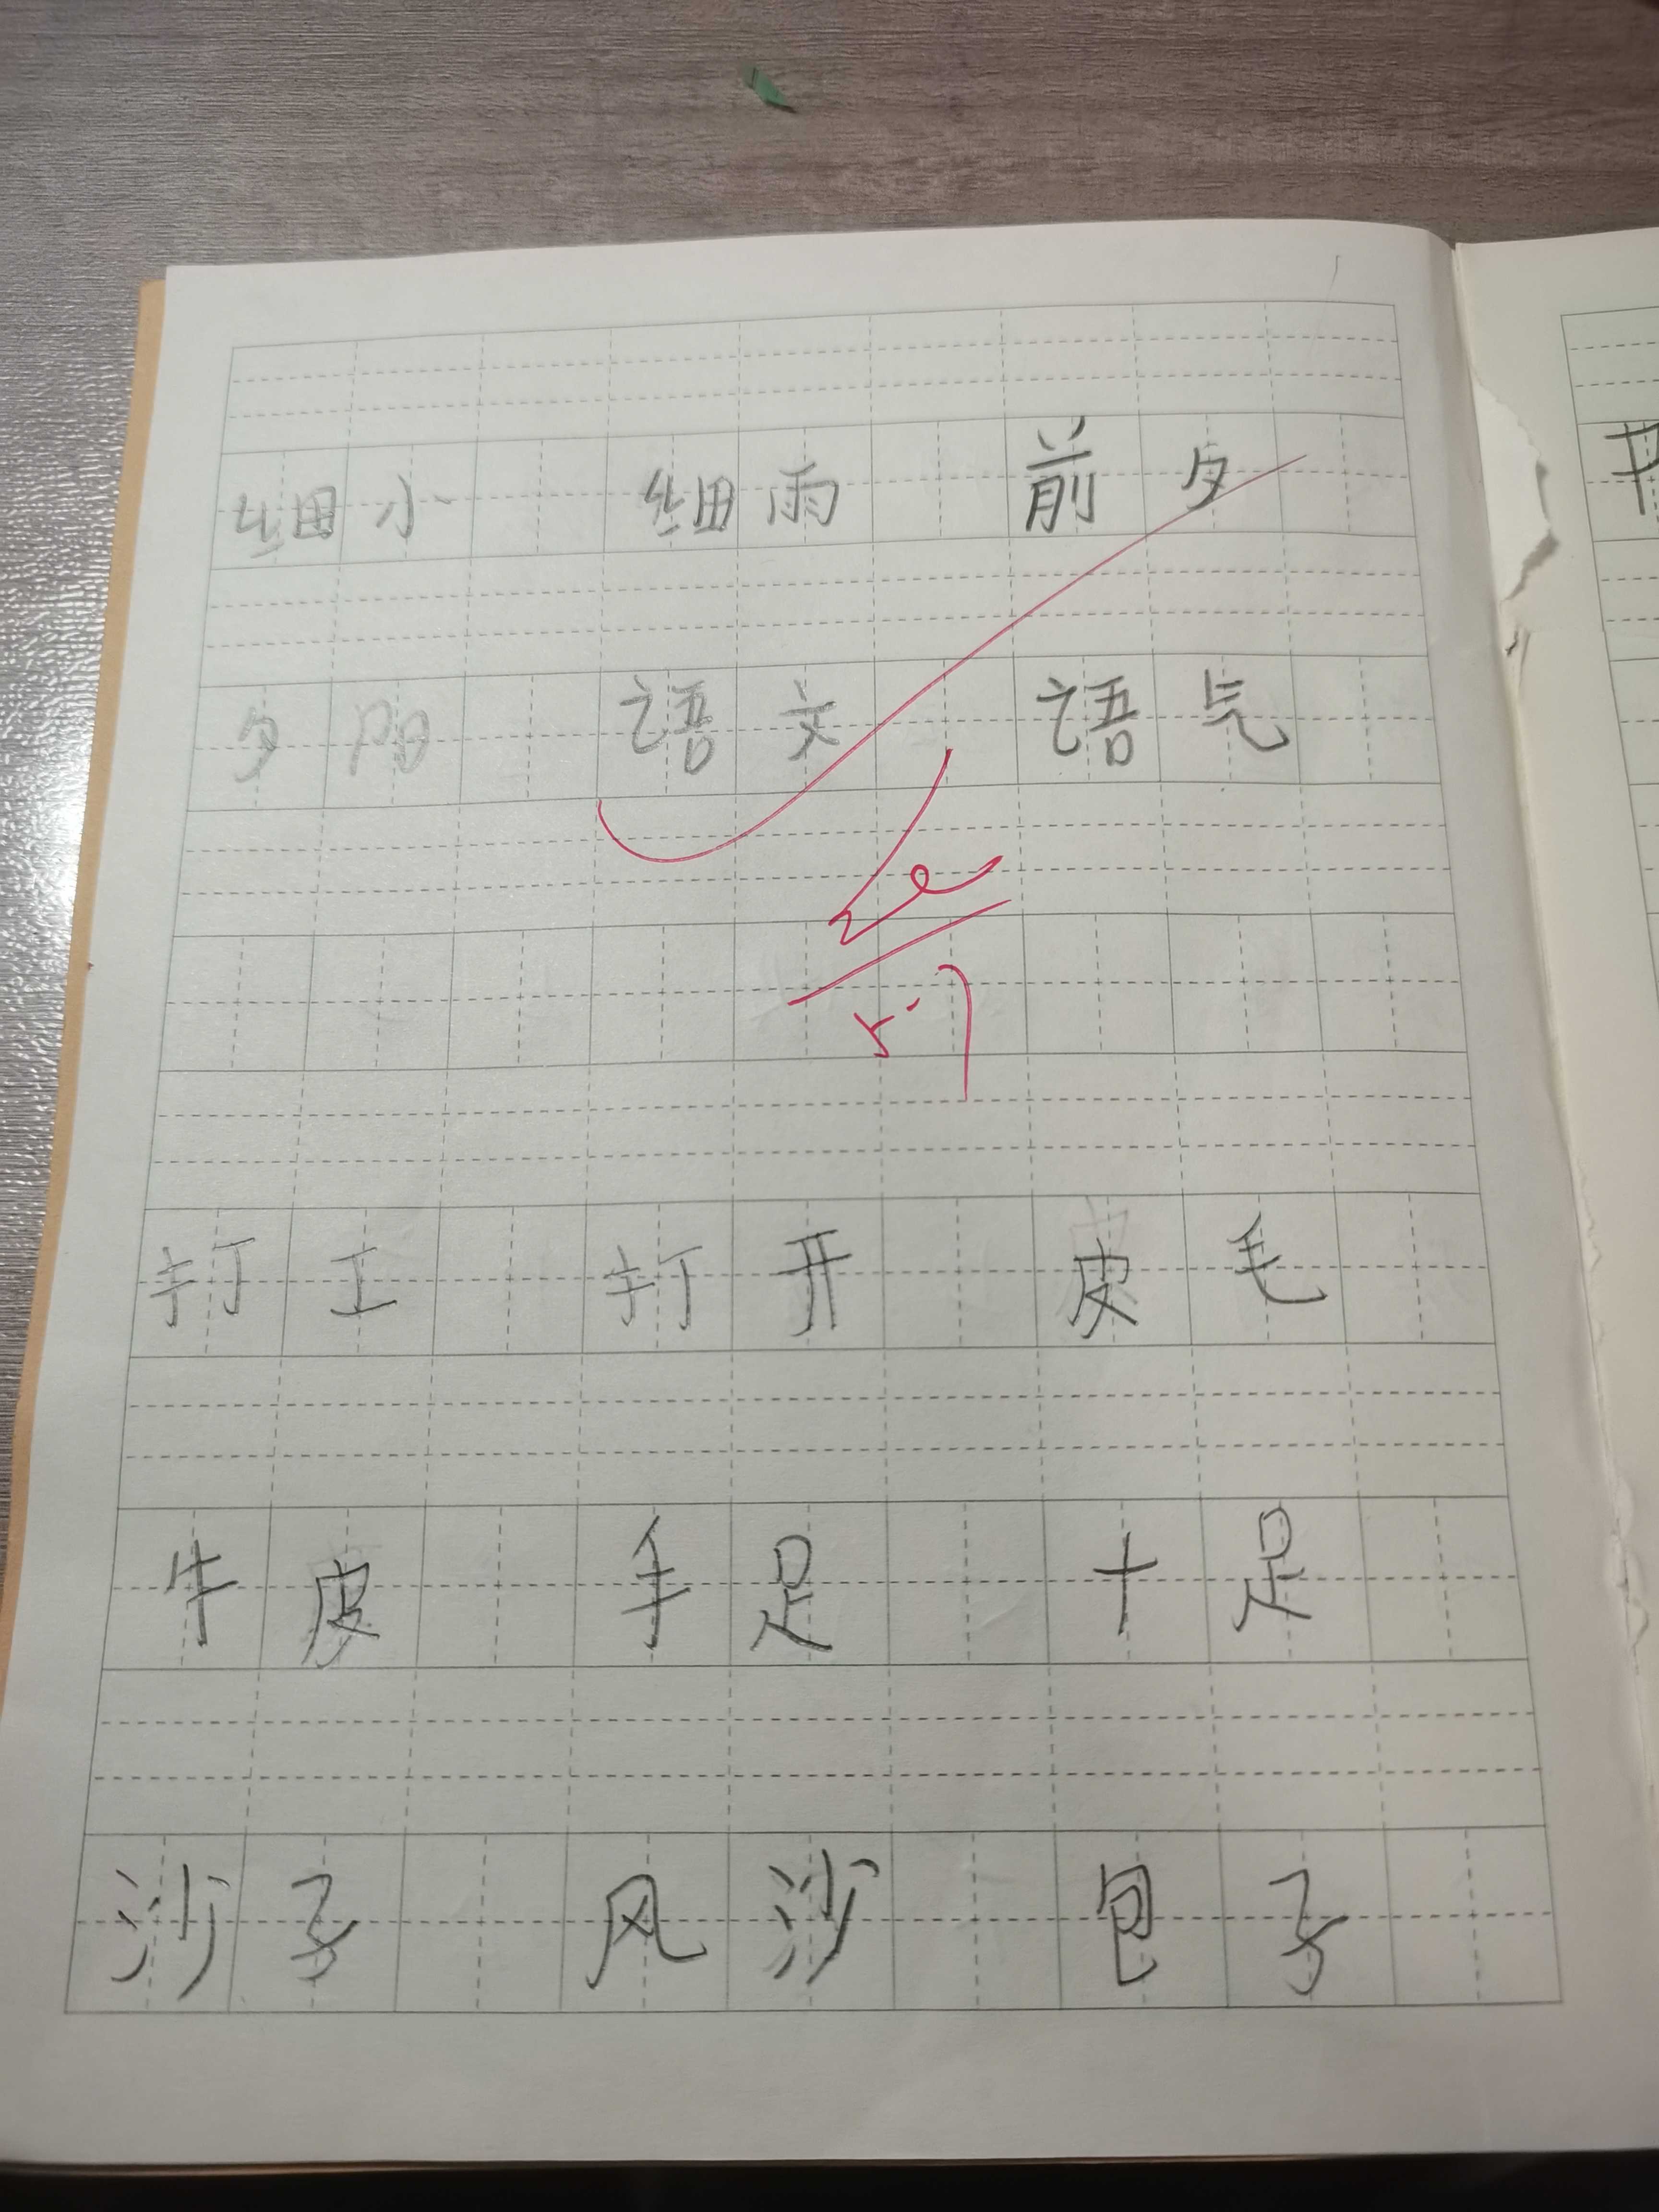 细小 细雨 前夕
夕阳 语文 语气
打工 打开 皮毛
牛皮 手足 十足
沙子 风沙 包子